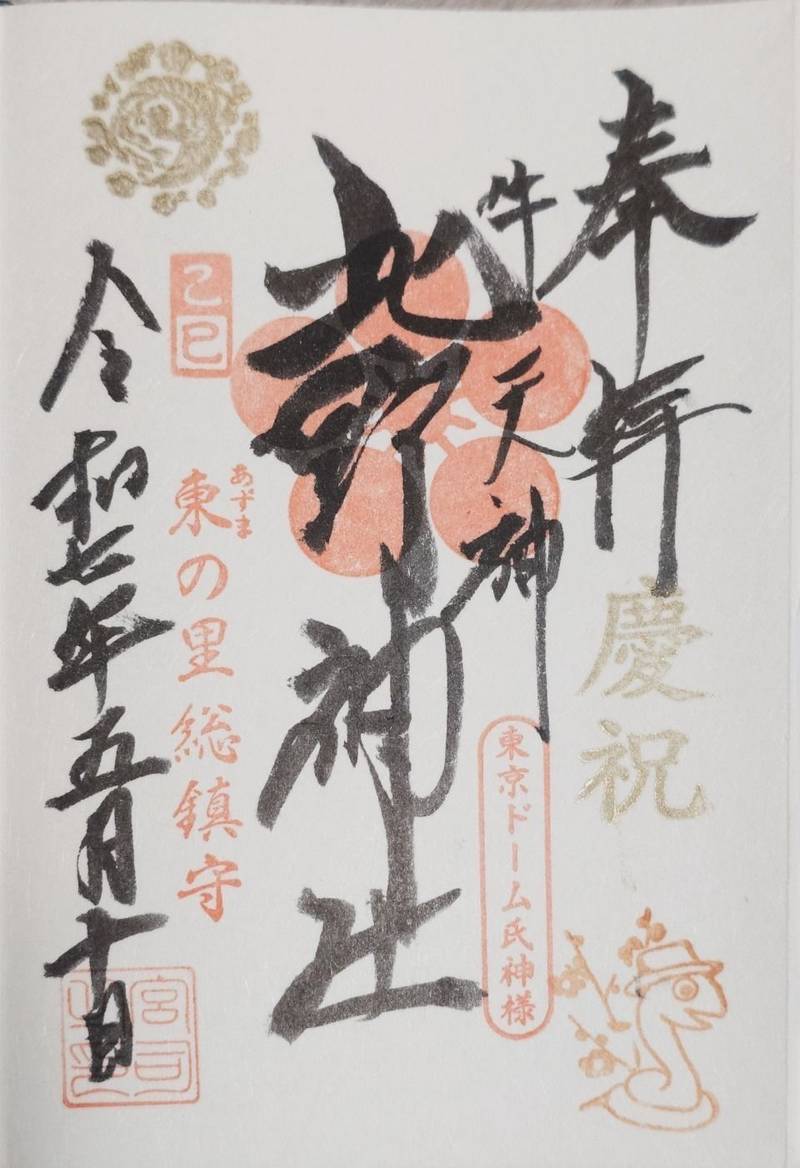 奉拝
慶祝
牛天神
東京ドーム氏神様
北野神社
あずま
東の里総鎮守
乙巳
令和七年五月十日
宮司